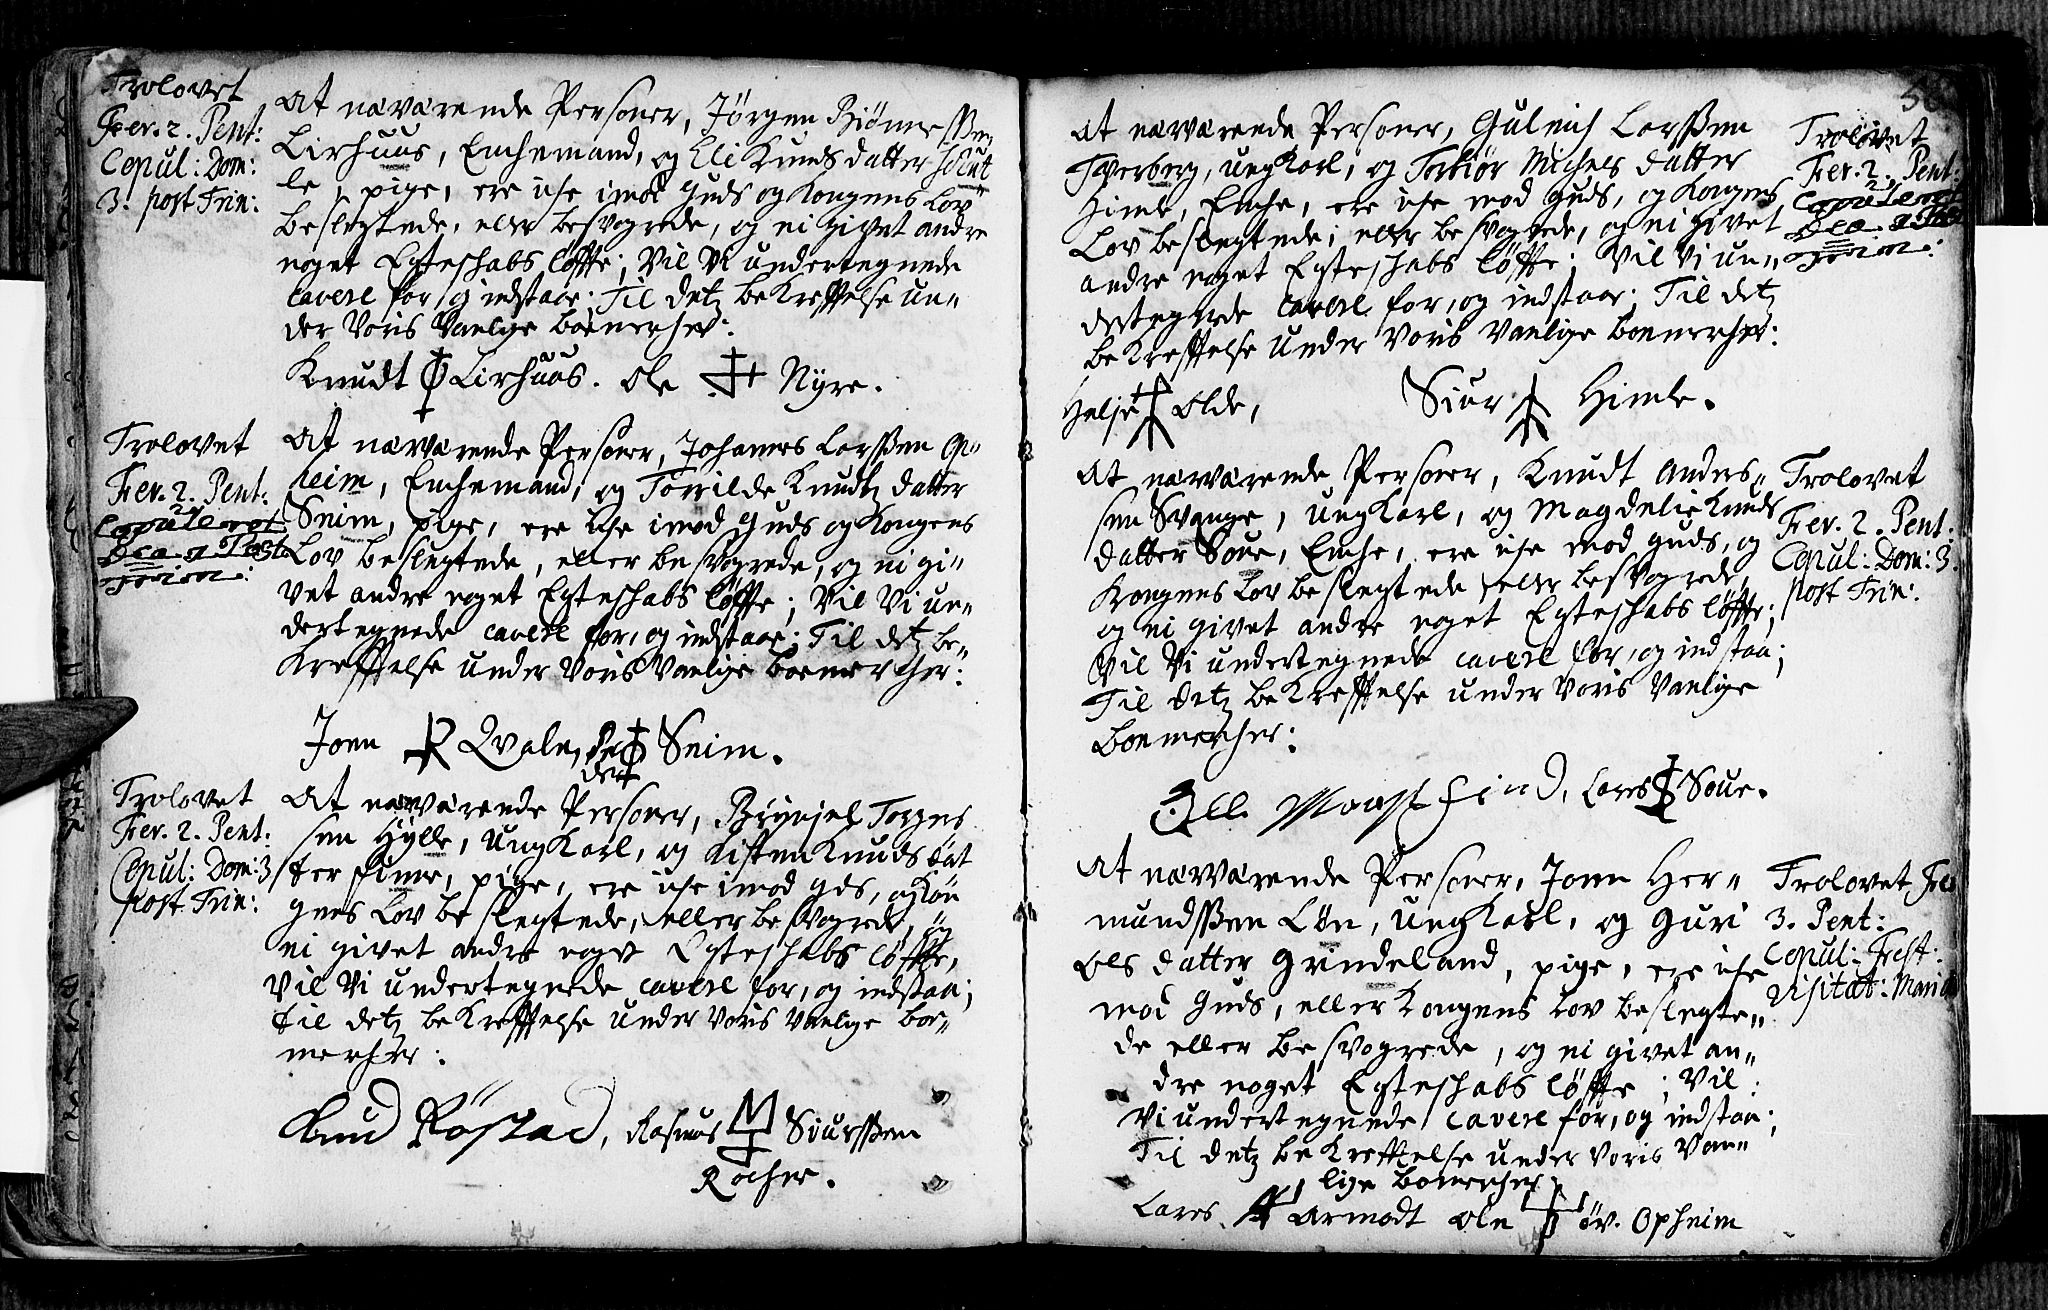 Trolovet
Fer. 2. Pent:
Copul: Dom:
3. post Trin:
At nærværende Personer, Jörgen Biörnessen
Lirhuus, Enchemand, og Eli Knuds datter Schut
le, pige, ere icke imod Guds og Kongens Lov
beslegtede, eller besvogrede, og ei givet andre
noget Egteschabs løffte; Vil Vi undertegnede
cavere for, og indstaae; Til detz bekreffelse un„
der Voris Vanlige boemercher:
Knudt Lirhuus. Ole Nyre.
Trolovet
Fer. 2. Pent:
At nærværende Personer, Johannes Larssen Op„
heim, Enchemand, og Torrilde Knudtz datter
Sneim, pige, ere icke imod Guds og Kongens
Lov beslegtede, eller besvogrede, og ei gi„
vet andre noget Egteschabs løffte; Vil Vi un„
dertegnede cavere for, og indstaae; Til detz be„
kreffelse under Voris Vanlige boemercher:
Joen Qvale, Peder Sneim.
Trolovet
Fer. 2. Pent:
Copul: Dom: 3
post Trin:
At nærværende Personer, Brynjel Torges
sen Hylle, ungkarl, og Kisten Knuds dat
ter Finne, pige, ere icke imod gds, og Kon
gens Lov beslegtede, eller besvogrede, og
ei givet andre noget Egteschabs løffte,
Vil Vi undertegnede cavere for, og indstaa;
til detz bekreffelse under Voris Vanlige boe„
mercher:
Knud Röstad, Rasmus Siurssen
Rocher.
At nærværende Personer, Guleich Larssen
Tverberg, ungkarl, og Torbiör Michels datter
Himle, Enche, ere icke mod Guds, og Kongens
Lov beslegtede; eller besvogrede, og ei givet
andre noget Egteschabs løffte; Vil Vi un„
dertegnede cavere for, og indstaae; Til detz
bekreffelse under Voris Vanlige boemercher:
Trolovet
Fer. 2. Pent:
Helje Olde, Siur Himle.
At nærværende Personer, Knudt Anders„
sen Svange, ungkarl, og Magdelie Knuds
datter Soue, Enche, ere icke mod Guds, og
Kongens Lov beslegtede, eller besvogrede,
og ei givet andre noget Egteschabs løffte;
Vil Vi undertegnede cavere for, og indstaa;
Til detz bekreffelse under Voris Vanlige
boemercher:
Trolovet
Fer. 2. Pent:
Copul: Dom: 3.
post Trin:
Lares Soue.
At nærværende Personer, Joen Her„
mundssen Løn, ungkarl, og Guri
Ols datter Grindeland, pige, ere icke
mod Guds, eller Kongens Lov beslegte„
de eller besvogrede, og ei givet an„
dre noget Egteschabs løffte; Vil
Vi undertegnede cavere for, og indstaa;
Til detz bekreffelse under Voris Van„
lige boemercher
Trolovet Fer
3. Pent:
Copul: Fest:
Visitat: Mariæ
Lares Armodt Ole öv. Opheim